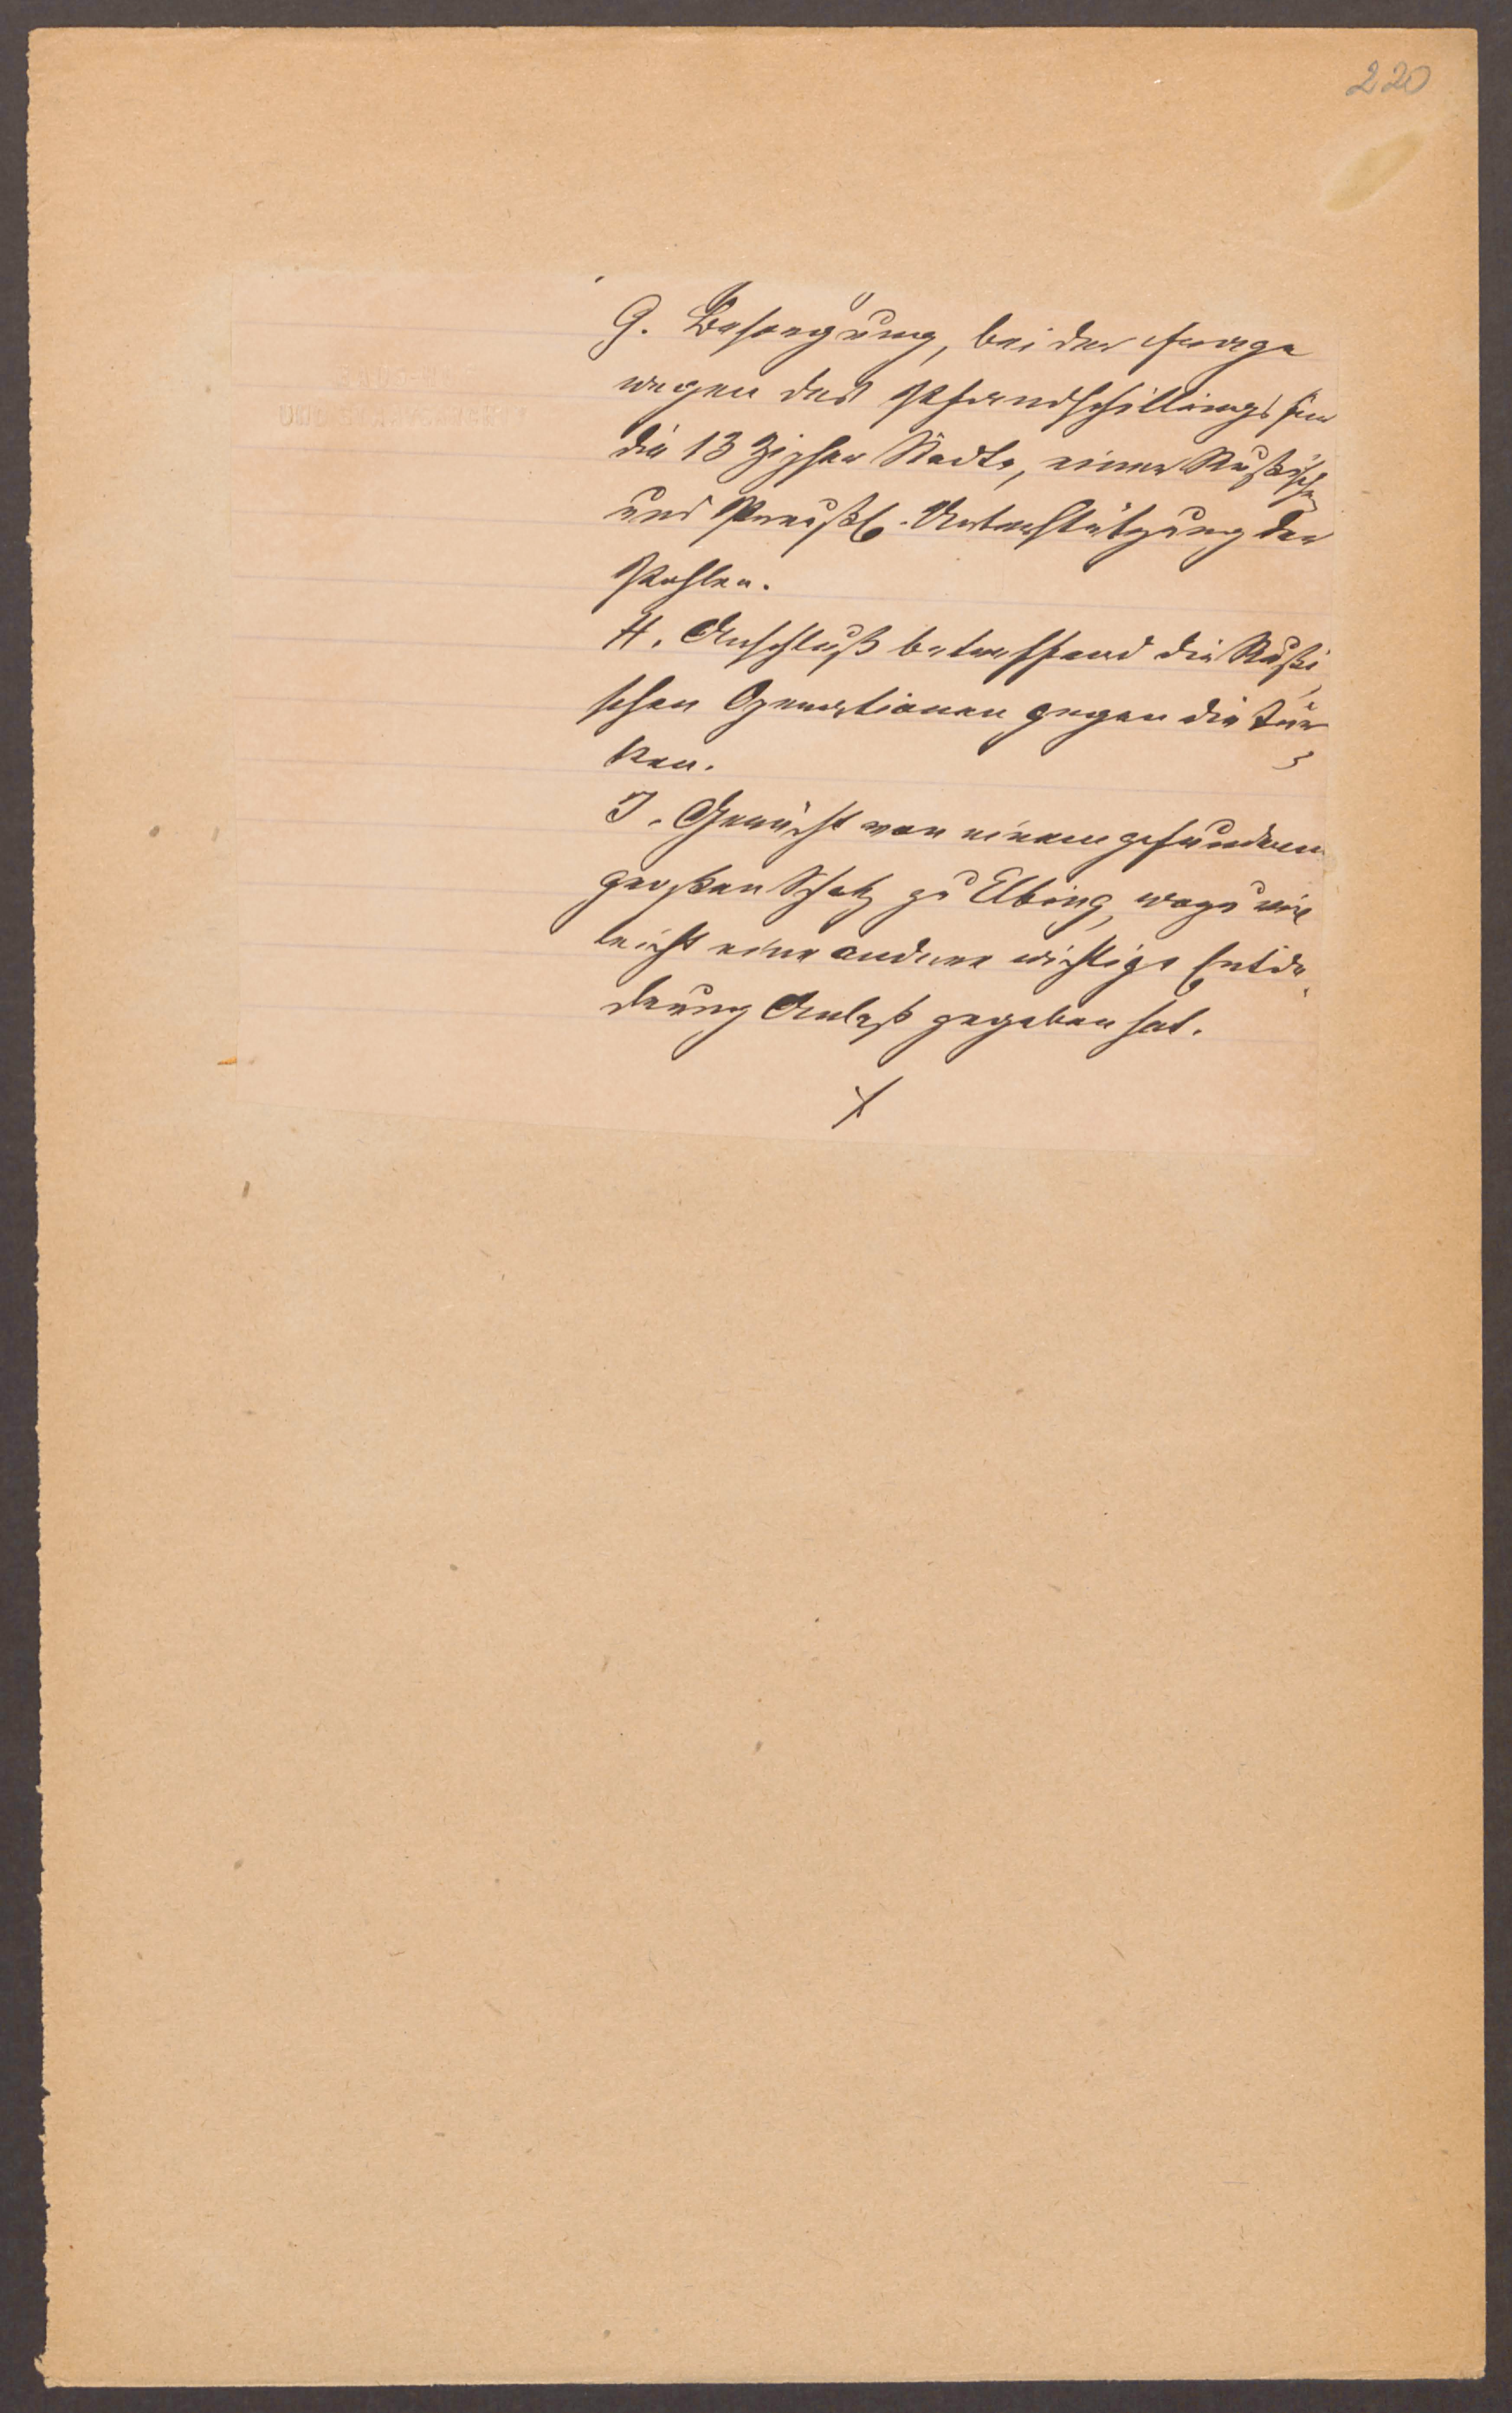 220
G. Besorgung, bei der Frage
wegen des Pfandschillings für
die 13 Zipser Städte, einer Rußischen
und Preußl. Unterstützung der
Pohlen.
H. Anschluß betreffend die Rußi
schen Operationen gegen die Tür
ken.
I. Gerücht von einem gefundenen
großen Schatz zu Elbing, wozu viel
leicht eine andere wichtige Entde
ckung Anlaß gegeben hat.